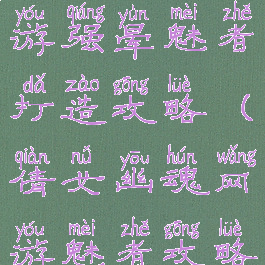 yóu qiáng yùn mèi zhě
游强晕魅者
dǎ zào gōng lüè
打造攻略（
qiàn nǚ yōu hún wǎng
倩女幽魂网
yóu mèi zhě gōng lüè
游魅者攻略